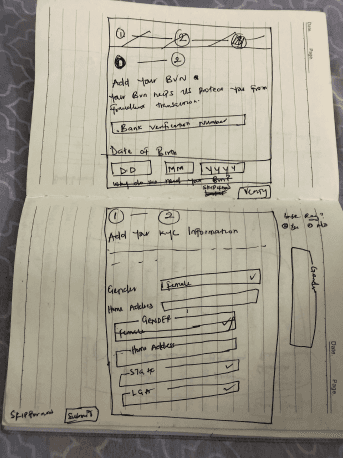 1 2
1 2
Add Your BVN
Your Bvn helps us protect you from
fraudulent transaction.
Bank Verification Number
Date of Birth
DD MM YYYY
Why do we need your Bvn?
Verify
1 2
Add Your KYC Information
Gender female
Home Address
GENDER
female
Home Address
State
LGA
Skip for now Submit
Gender
Date
Page
Date
Page